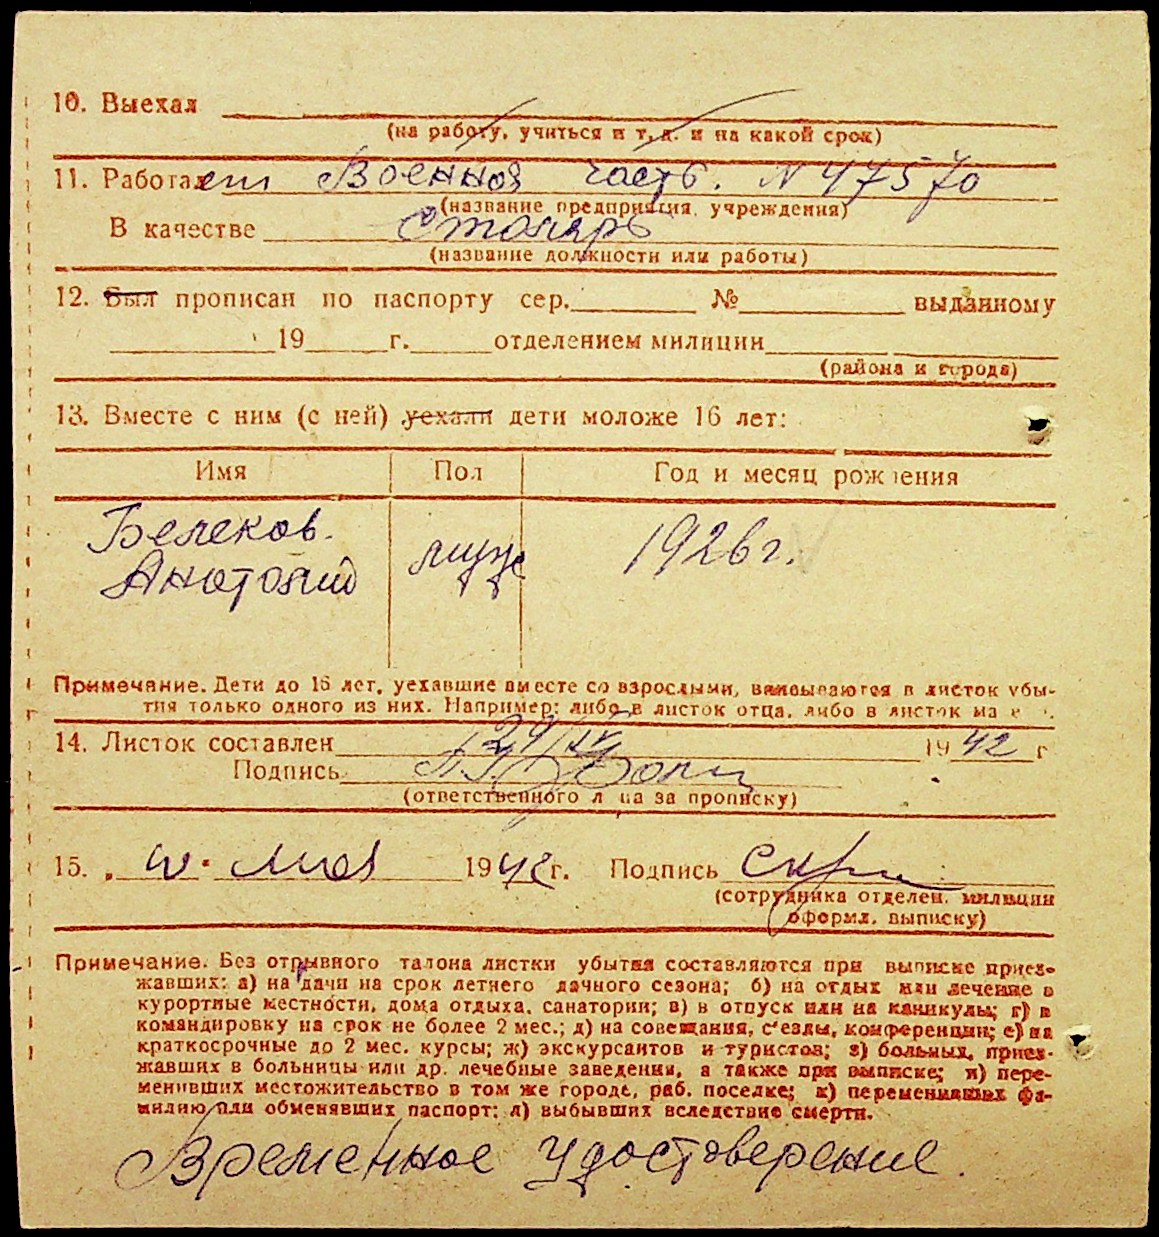 10. Выехал
(на работу, учиться и т. д. и на какой срок)
11. Работает Военная часть. N 47570
(название предприятия, учреждения)
В качестве столярь
(название должности или работы)
12. Был прописан по паспорту сер. № выданному
19 г. отделением милиции
(района и города)
13. Вместе с ним (с ней) уехали дети моложе 16 лет:
Имя Пол Год и месяц рождения
Белеков. муж 1926 г.
Анатолий
Примечание. Дети до 16 лет, уехавшие вместе со взрослыми, вписываются в листок убы-
тия только одного из них. Например: либо в листок отца, либо в листок ма
14. Листок составлен 29/IV 1942 г
Подпись
(ответственного лица за прописку)
15. „ мая 1942 г. Подпись
(сотрудника отделен. милиции
оформл. выписку)
Примечание. Без отрывного талона листки убытия составляются при выписке приез-
жавших: а) на дачи на срок летнего дачного сезона; б) на отдых или лечение в
курортные местности, дома отдыха, санатории; в) в отпуск или на каникулы; г) в
командировку на срок не более 2 мес.; д) на совещания, с'езды, конференции; е) на
краткосрочные до 2 мес. курсы; ж) экскурсантов и туристов; з) больных, приез-
жавших в больницы или др. лечебные заведения, а также при выписке; и) пере-
менивших местожительство в том же городе, раб. поселке; к) переменивших фа-
милию или обменявших паспорт; л) выбывших вследствие смерти.
Временное удостоверение.